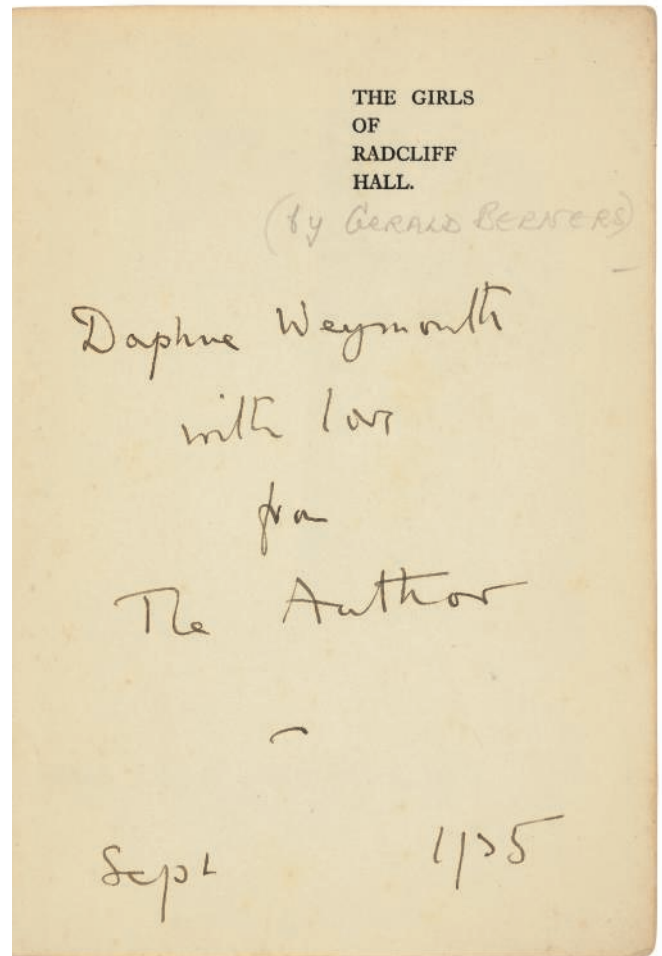 THE GIRLS
OF
RADCLIFF
HALL.
(by GERALD BERNERS)
Daphne Weymouth
with love
from
The Author
Sept 1935